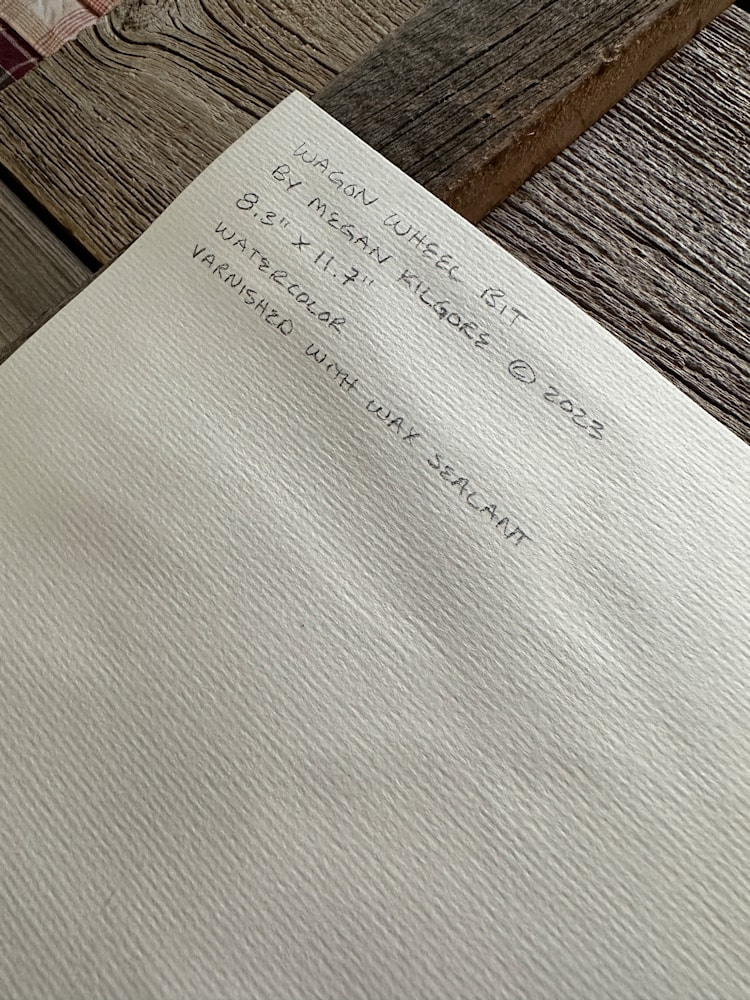 WAGON WHEEL BIT
BY MEGAN KILGORE © 2023
8.3" X 11.7"
WATERCOLOR
VARNISHED WITH WAX SEALANT